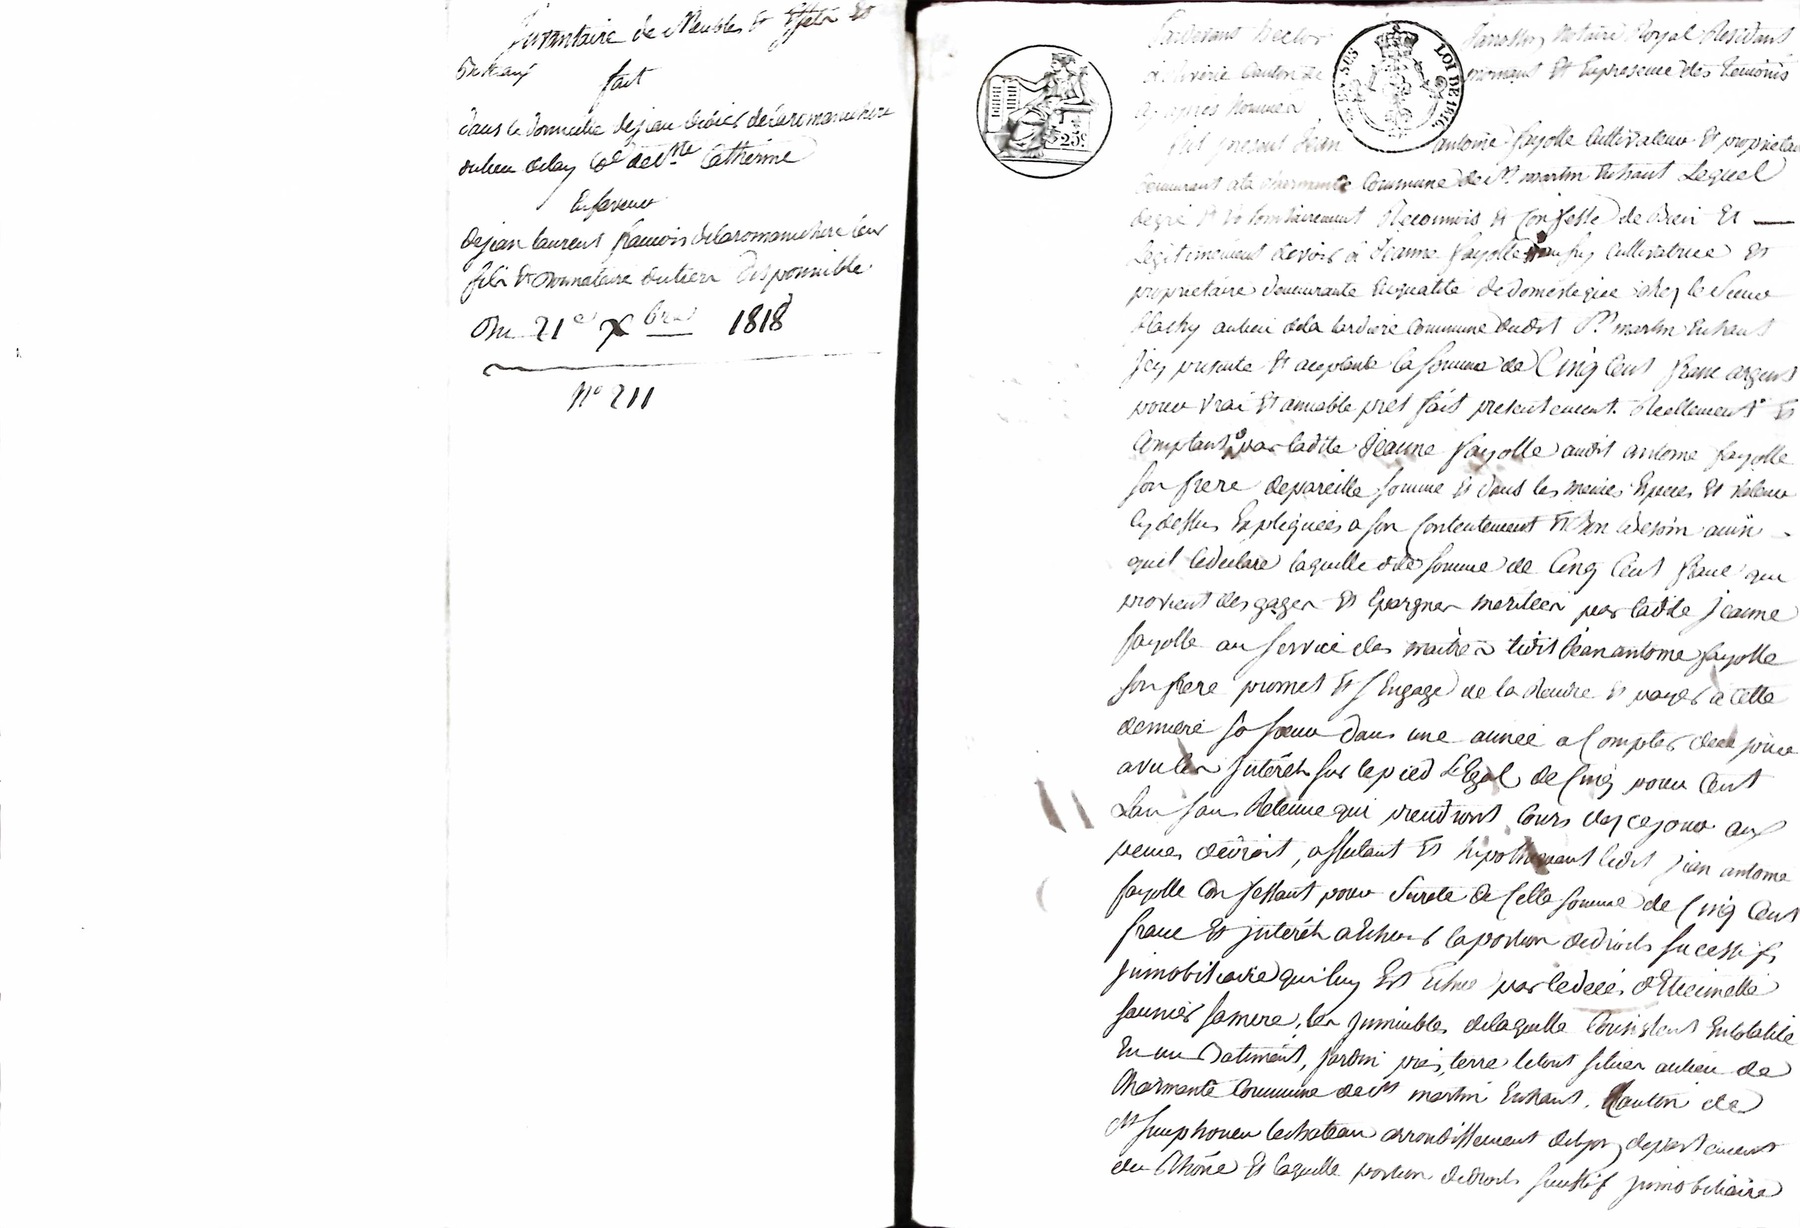 Inventaire de Meubles et Effets Et
Bestiaux
fait
dans le domicile de jean didier delaromanchere
du lieu delay Cne de Ste Catherine
En faveur
de jean laurent françois delaromanchere leur
fils Et Donnataire du tiers disponnible
Du 21e Xbre 1818
No 211
Pardevant hector Notaire Royal Residant
à Riverie Canton de mornant Et En presence des Temoins
cy après Nommés
fut présent Jean antoine fayolle cultivateur Et propriétaire
demeurant a la charmente Commune de St martin En haut Lequel
de gré Et Volontairement Reconnois Et Confesse de Bien Et
Legitimement devoir à Jeanne fayolle cultivatrice Et
proprietaire demeurante En qualité de domestique chez le Sieur
blachy au lieu de la commune dudit St martin En haut
Icy présente Et aceptante la somme de Cinq Cent franc argent
pour vrai Et amiable prêt fait presentement Reellement Et
Comptant par ladite Jeanne fayolle audit antoine fayolle
son frere de pareille somme Et dans les memes Especes Et Valeur
cy dessus Expliquées a son Contentement Et ainsi
quil le déclare laquelle dite somme de Cinq Cent franc qui
provient des gages Et Epargnes meritées par ladite Jeanne
fayolle au Service des maitres ledit Jean antoine fayolle
son frere promet Et s'Engage de la Rendre Et payer a cette
derniere sa soeur dans une année a Compter de ce jour
avec les Intérêts sur le pied Légal de Cinq pour Cent
L'an sans Retenue qui prendront Cours des ce jour aux
peines de droit, affectant Et hipothequant ledit jean antoine
fayolle Confessant pour Sureté de Celle somme de Cinq Cent
franc Et intérêts a Echoir la portion de droits sucessifs
jmmobiliaire qui luy Est Echue par le décés d'Etiennette
saunier sa mere, les jmmeubles de laquelle Consistent En totalité
En un Batiment, jardin prés, terre le tout situés au lieu de
Charmente Commune de St martin En haut, Canton de
St Simphorien le chateau arrondissement de lyon departement
du Rhône Et laquelle portion de droits sucessif jmmobiliaire
25c.
LOI DE 1816.